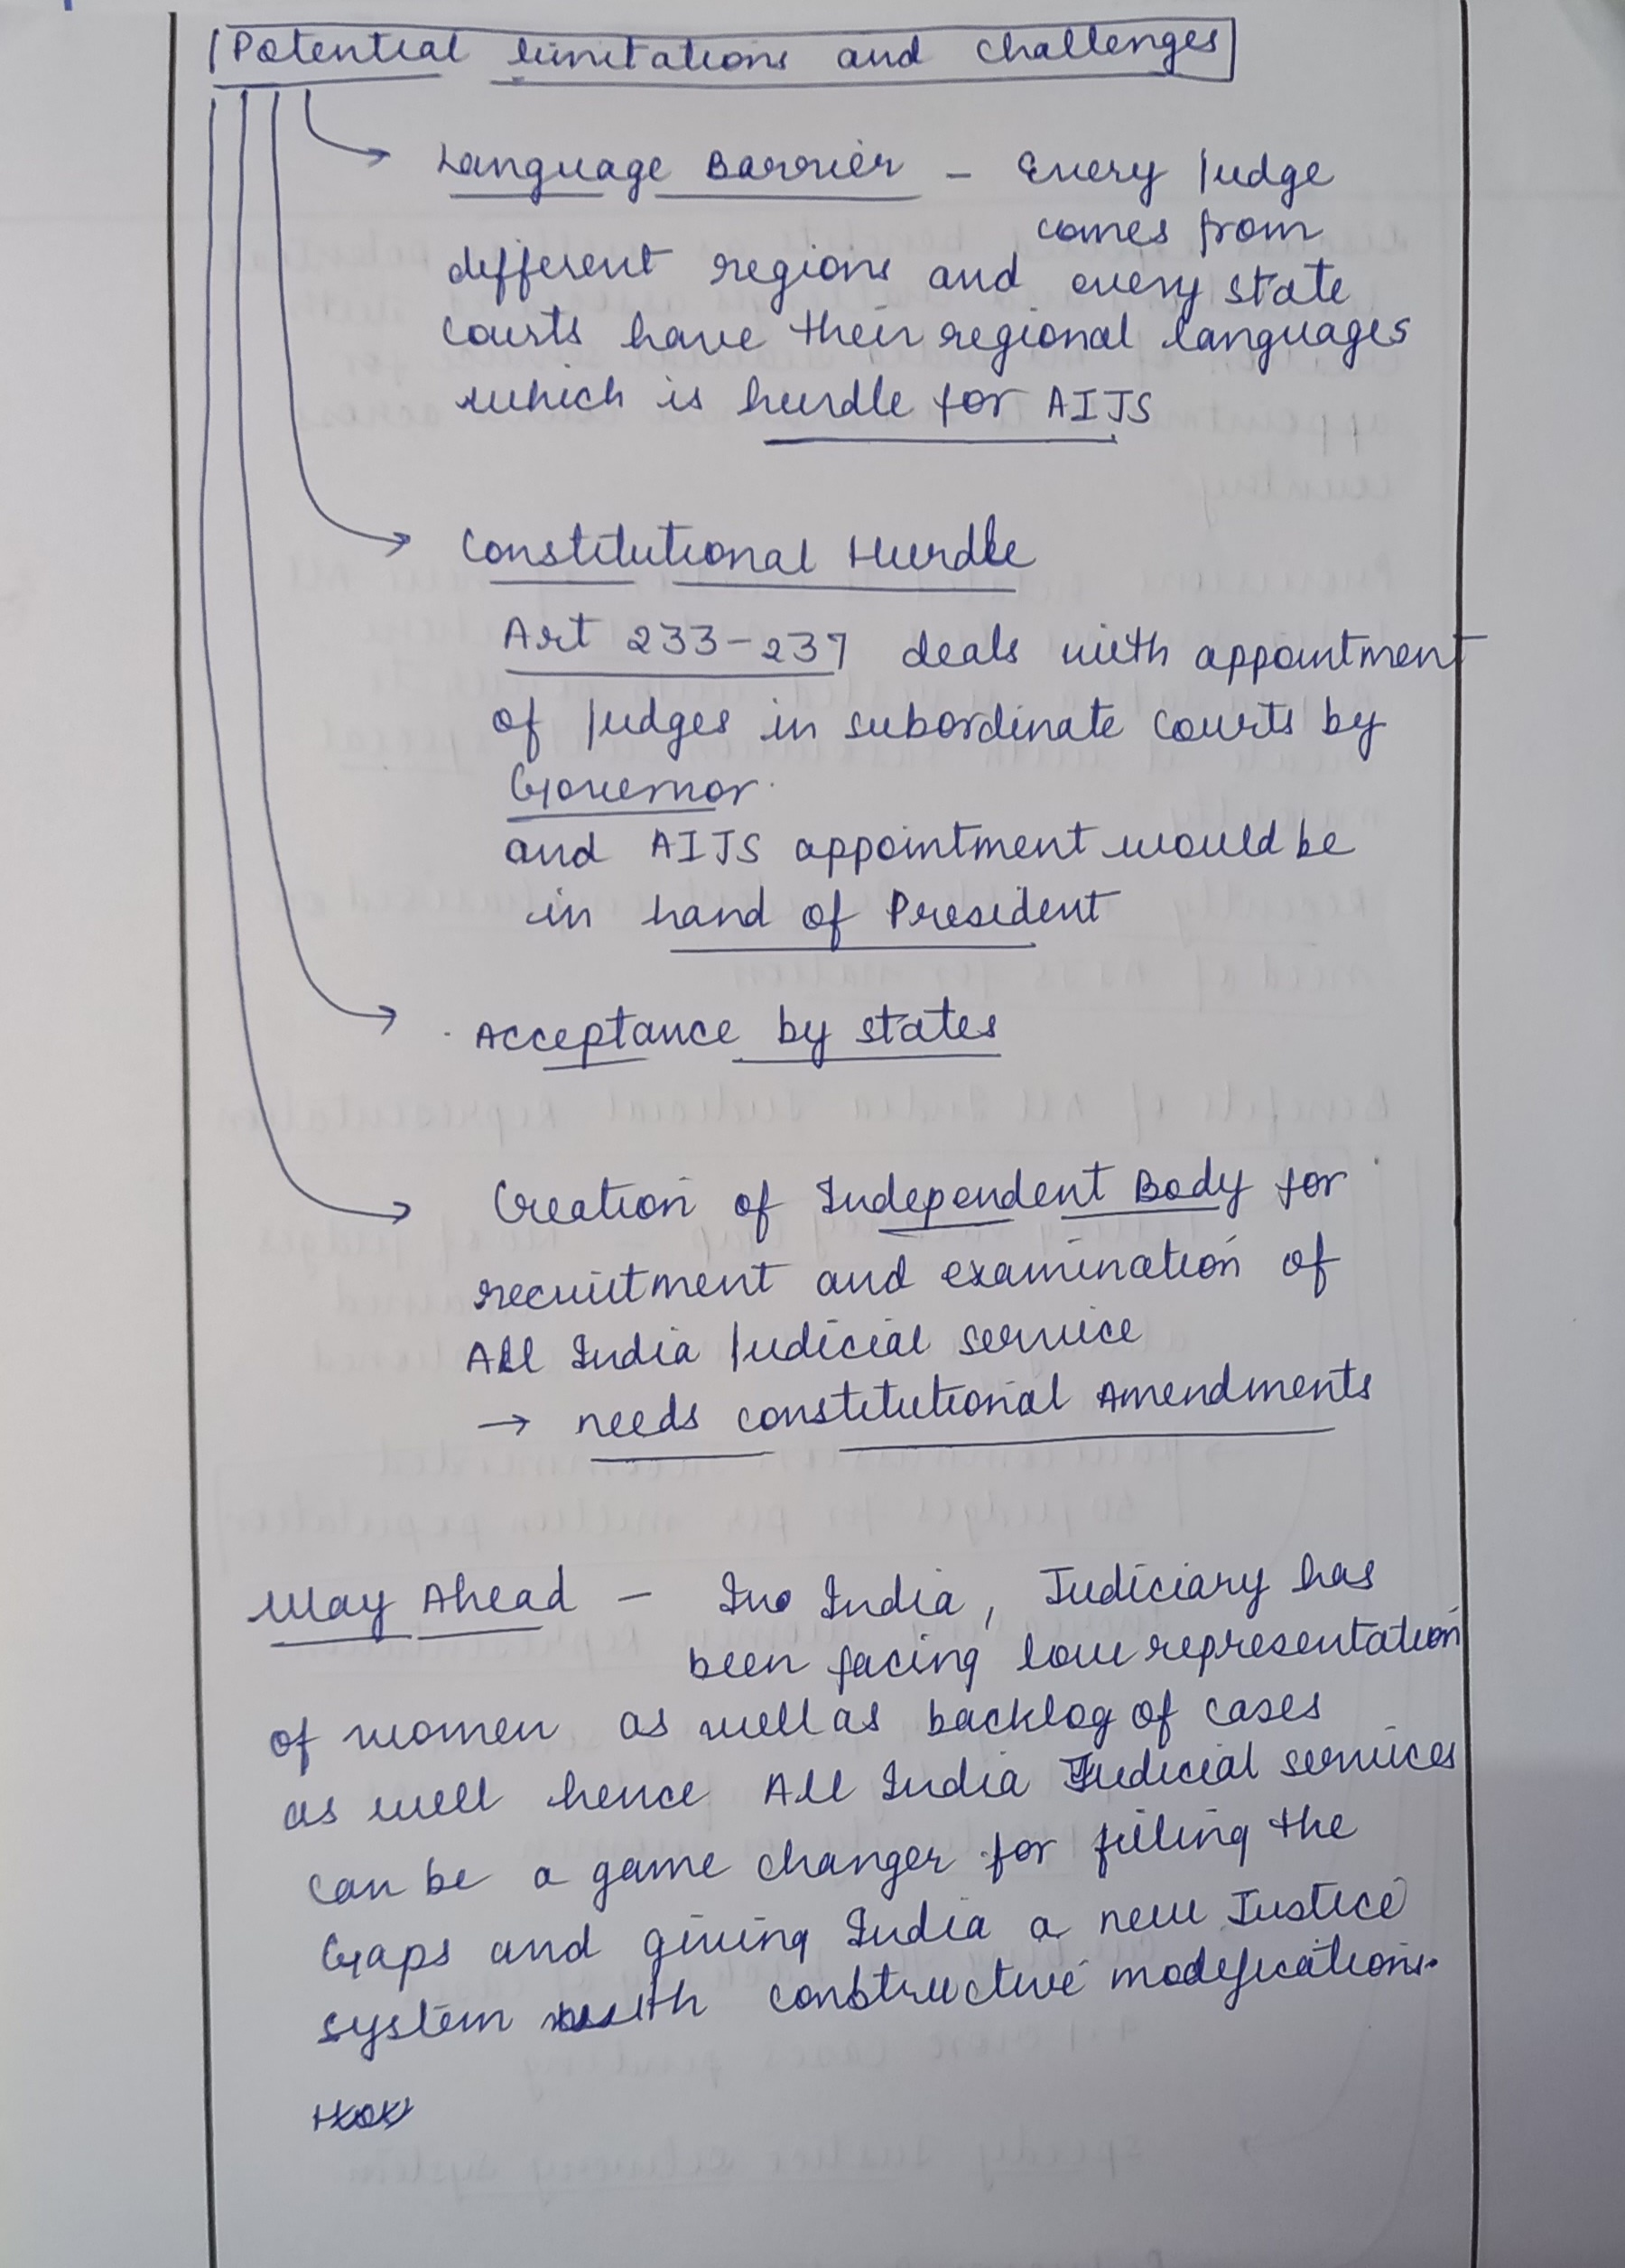 Potential limitations and challenges
Language Barrier - Every Judge
comes from
different regions and every state
courts have their regional languages
which is hurdle for AIJS
Constitutional Hurdle
Art 233-237 deals with appointment
of Judges in subordinate courts by
Governor
and AIJS appointment would be
in hand of President
Acceptance by states
Creation of Independent Body for
recruitment and examination of
All India Judicial service
→ needs constitutional Amendments
Way Ahead - In India, Judiciary has
been facing low representation
of women as well as backlog of cases
as well hence All India Judicial services
can be a game changer for filling the
Gaps and giving India a new Justice
system with constructive modifications.